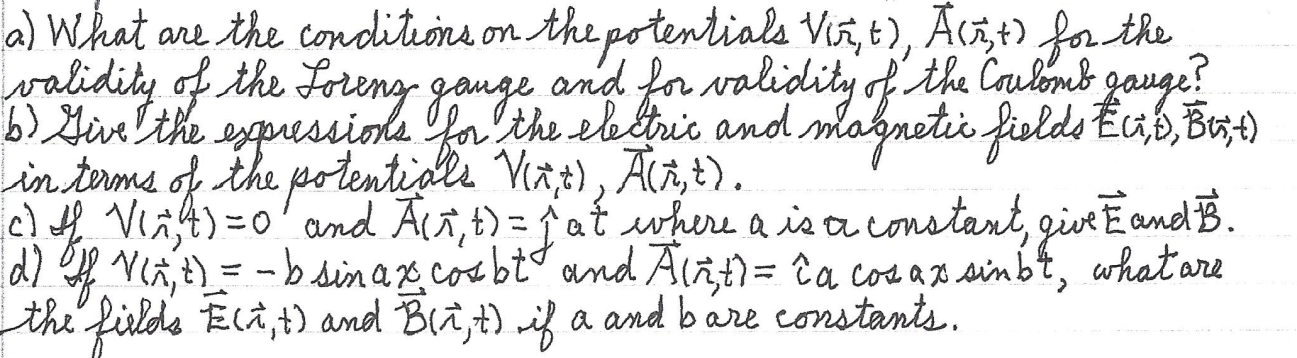 a) What are the conditions on the potentials V(r⃗,t), A⃗(r⃗,t) for the
validity of the Lorenz gauge and for validity of the Coulomb gauge?
b) Give the expressions for the electric and magnetic fields E⃗(r⃗,t), B⃗(r⃗,t)
in terms of the potentials V(r⃗,t), A⃗(r⃗,t).
c) If V(r⃗,t) = 0 and A⃗(r⃗,t) = ĵ at where a is a constant, give E⃗ and B⃗.
d) If V(r⃗,t) = -b sin ax cos bt and A⃗(r⃗,t) = î a cos ax sin bt, what are
the fields E⃗(r⃗,t) and B⃗(r⃗,t) if a and b are constants.